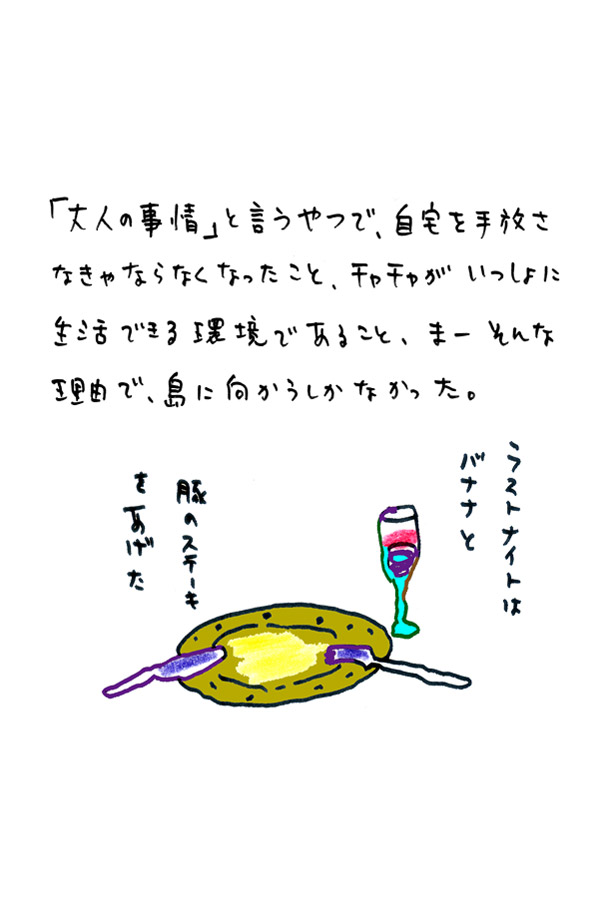 「大人の事情」と言うやつで、自宅を手放さ
なきゃならなくなったこと、チャチャが いっしょに
生活できる環境であること、まー そんな
理由で、島に向かうしかなかった。
ラストナイトは
バナナと
豚のステーキ
をあげた